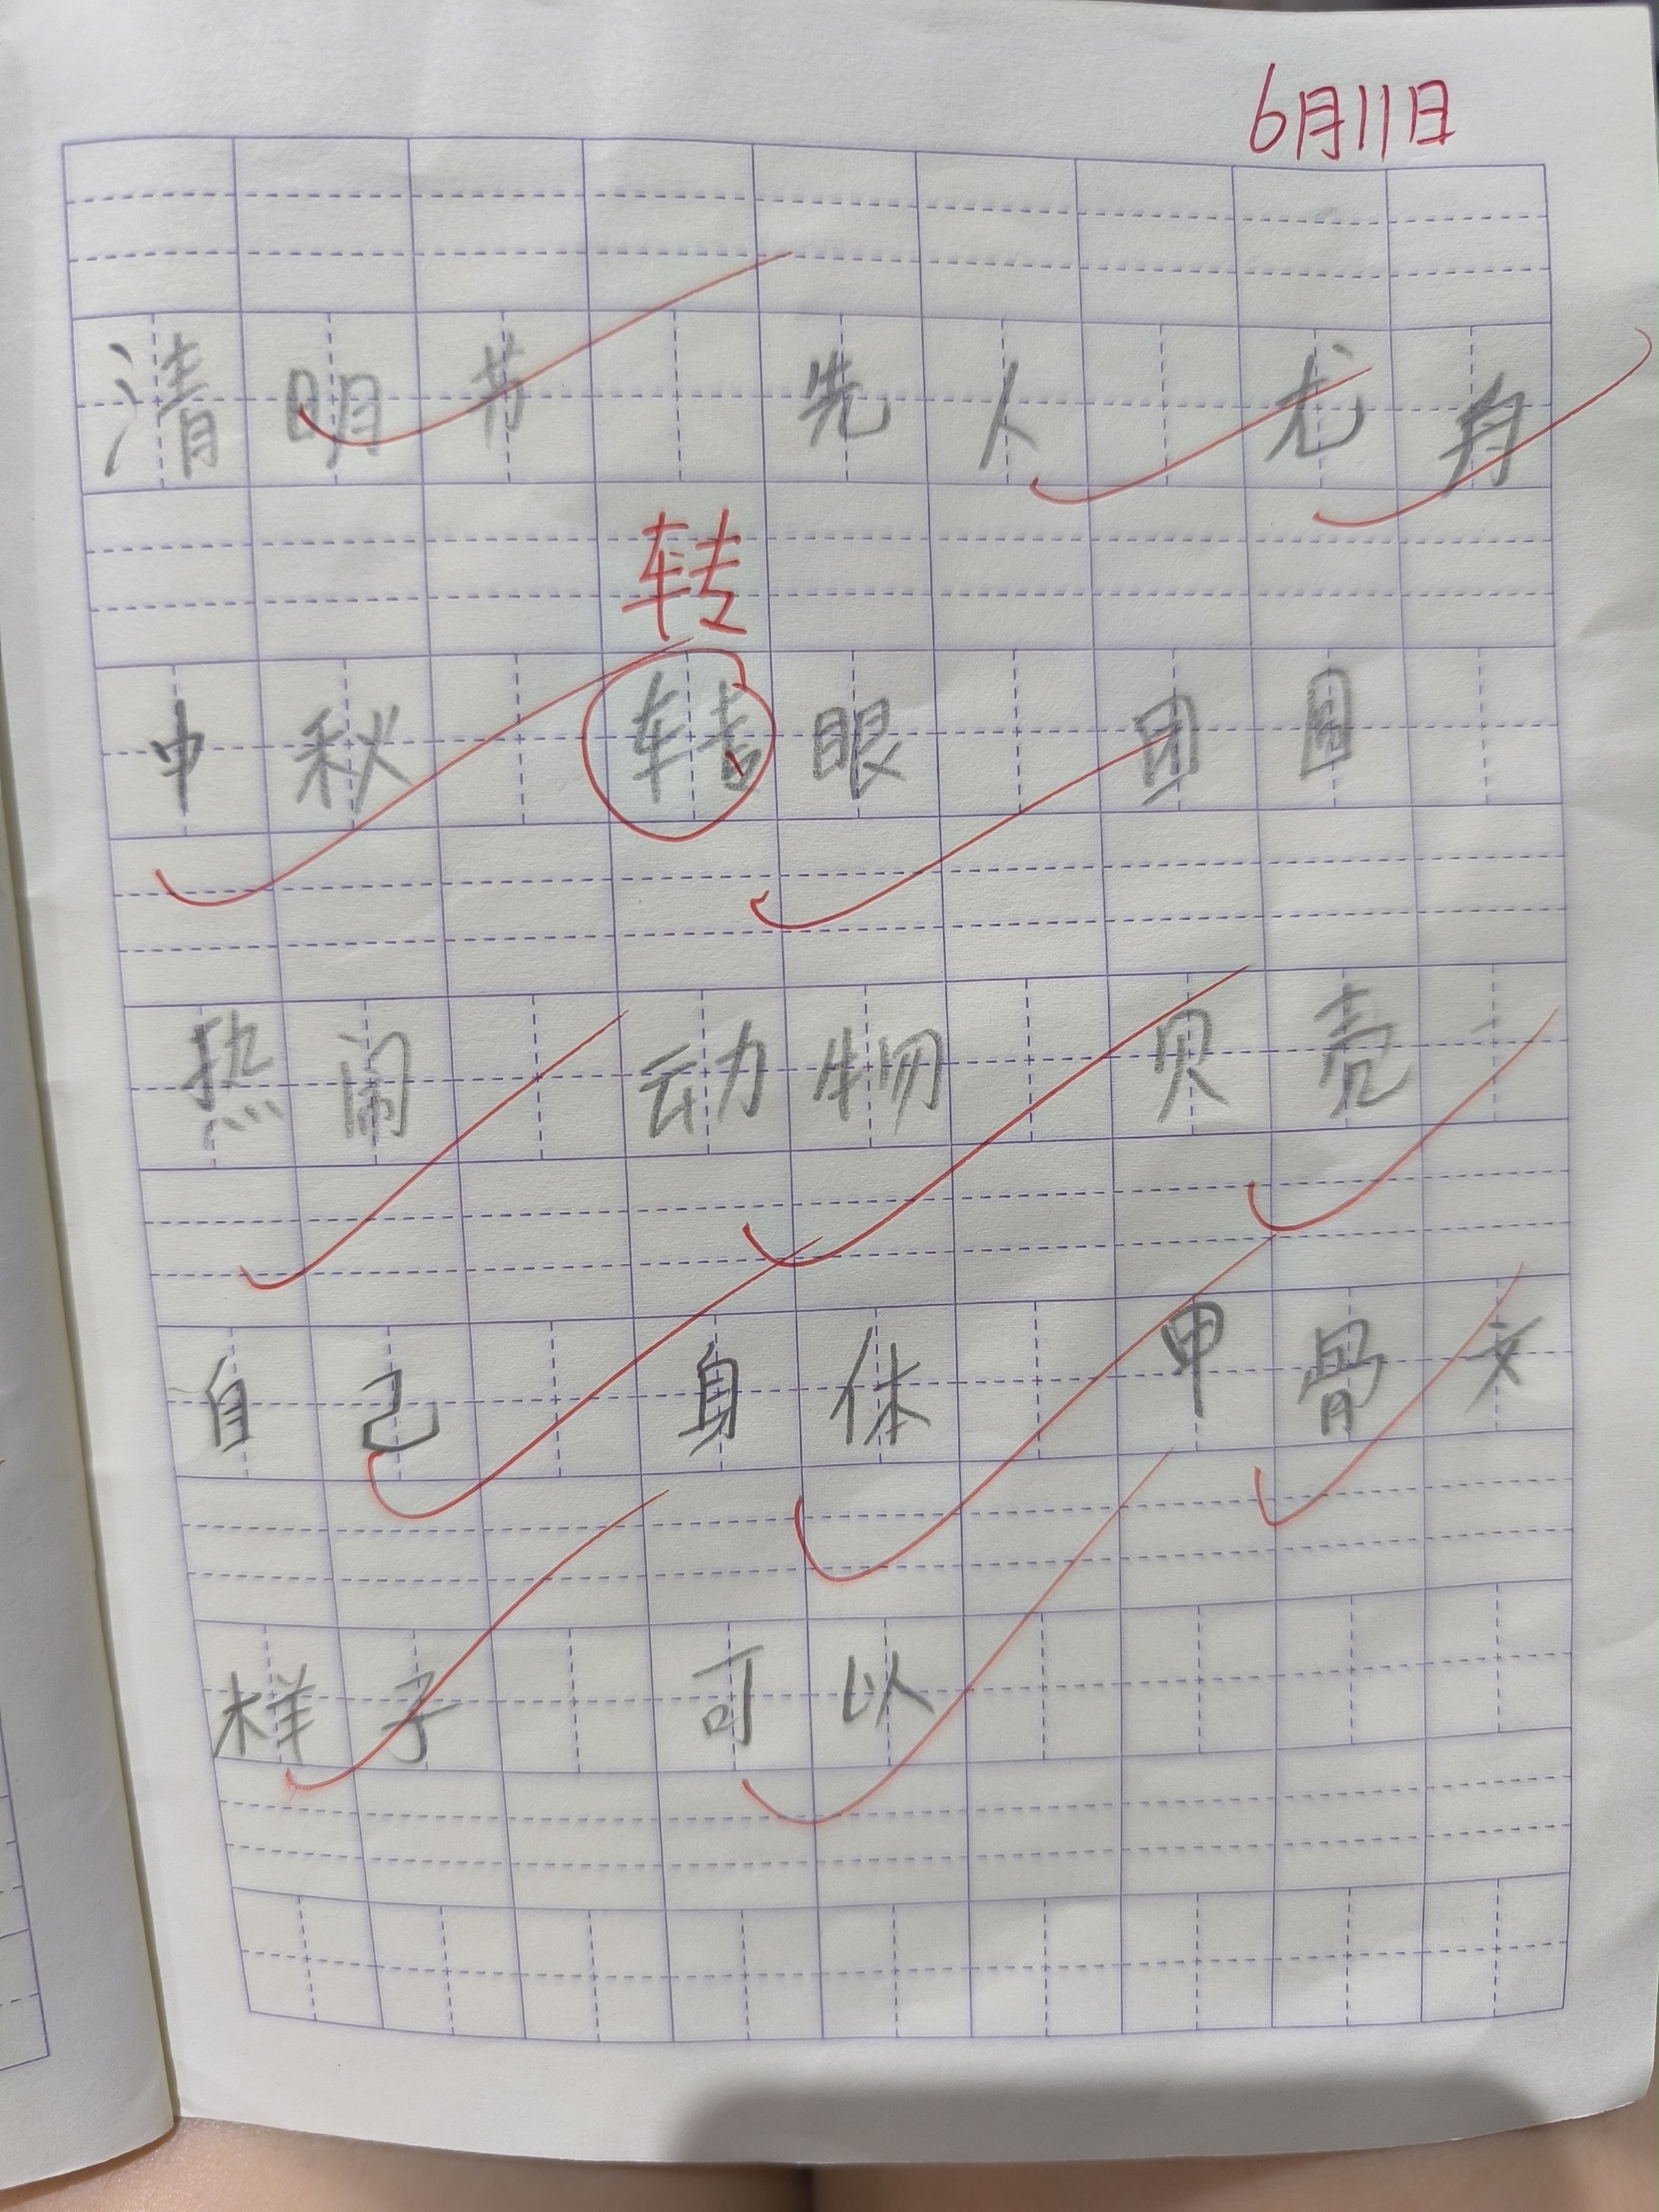 6月11日
清明节 先人 龙舟
转
中秋 转眼 团圆
热闹 动物 贝壳
自己 身体 甲骨文
样子 可以